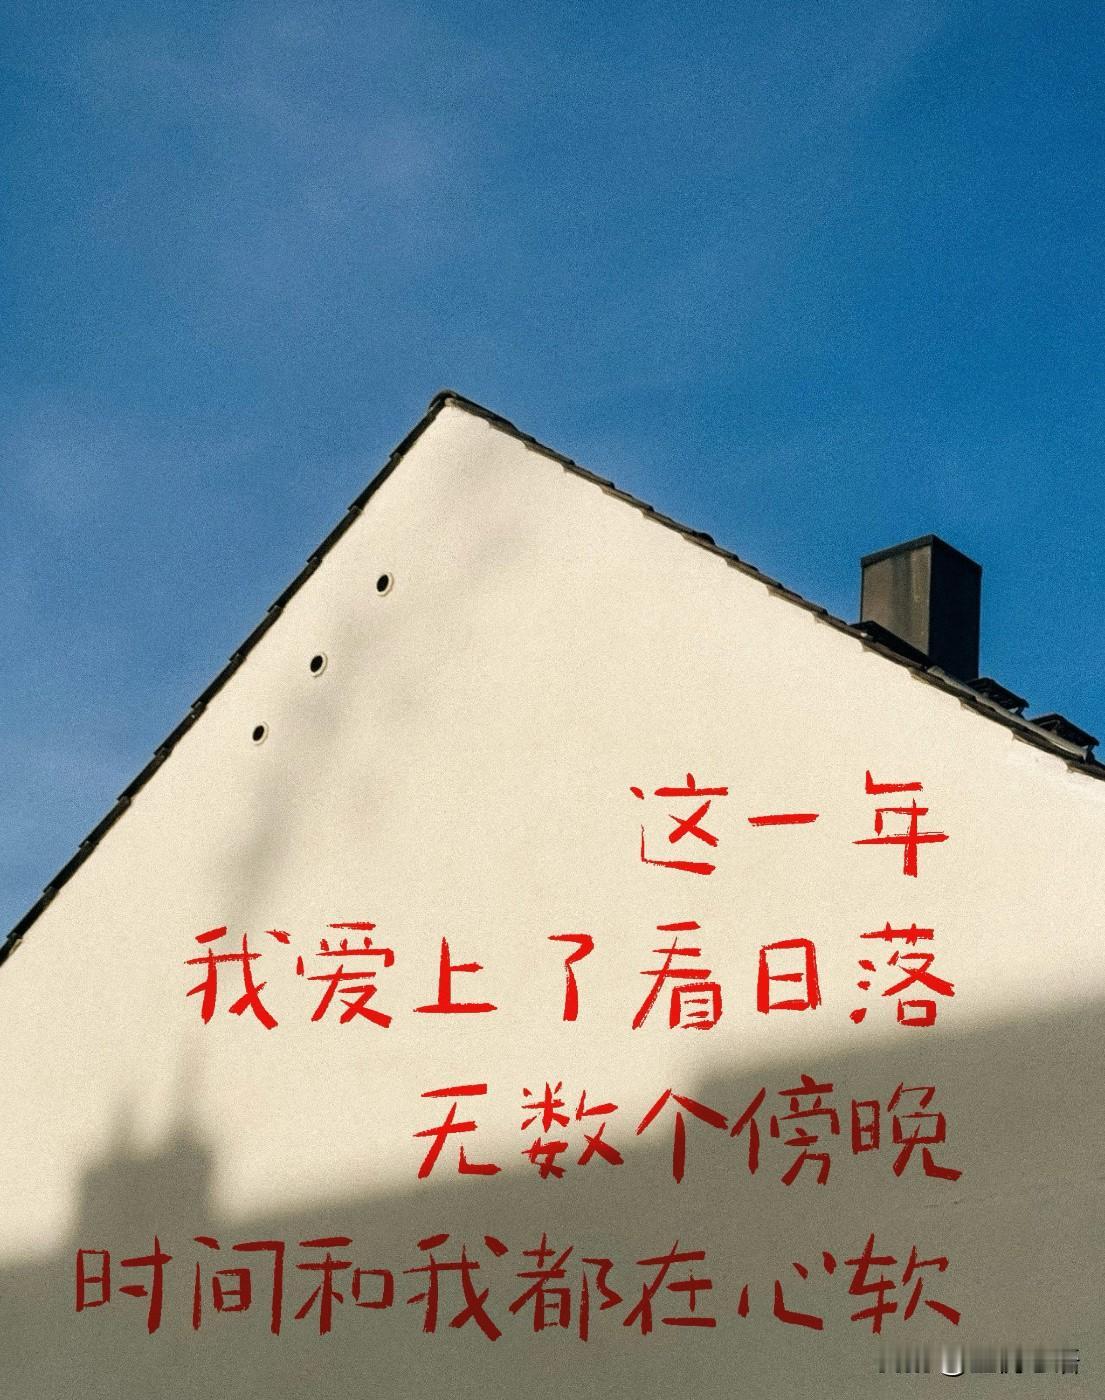 这一年
我爱上了看日落
无数个傍晚
时间和我都在心软